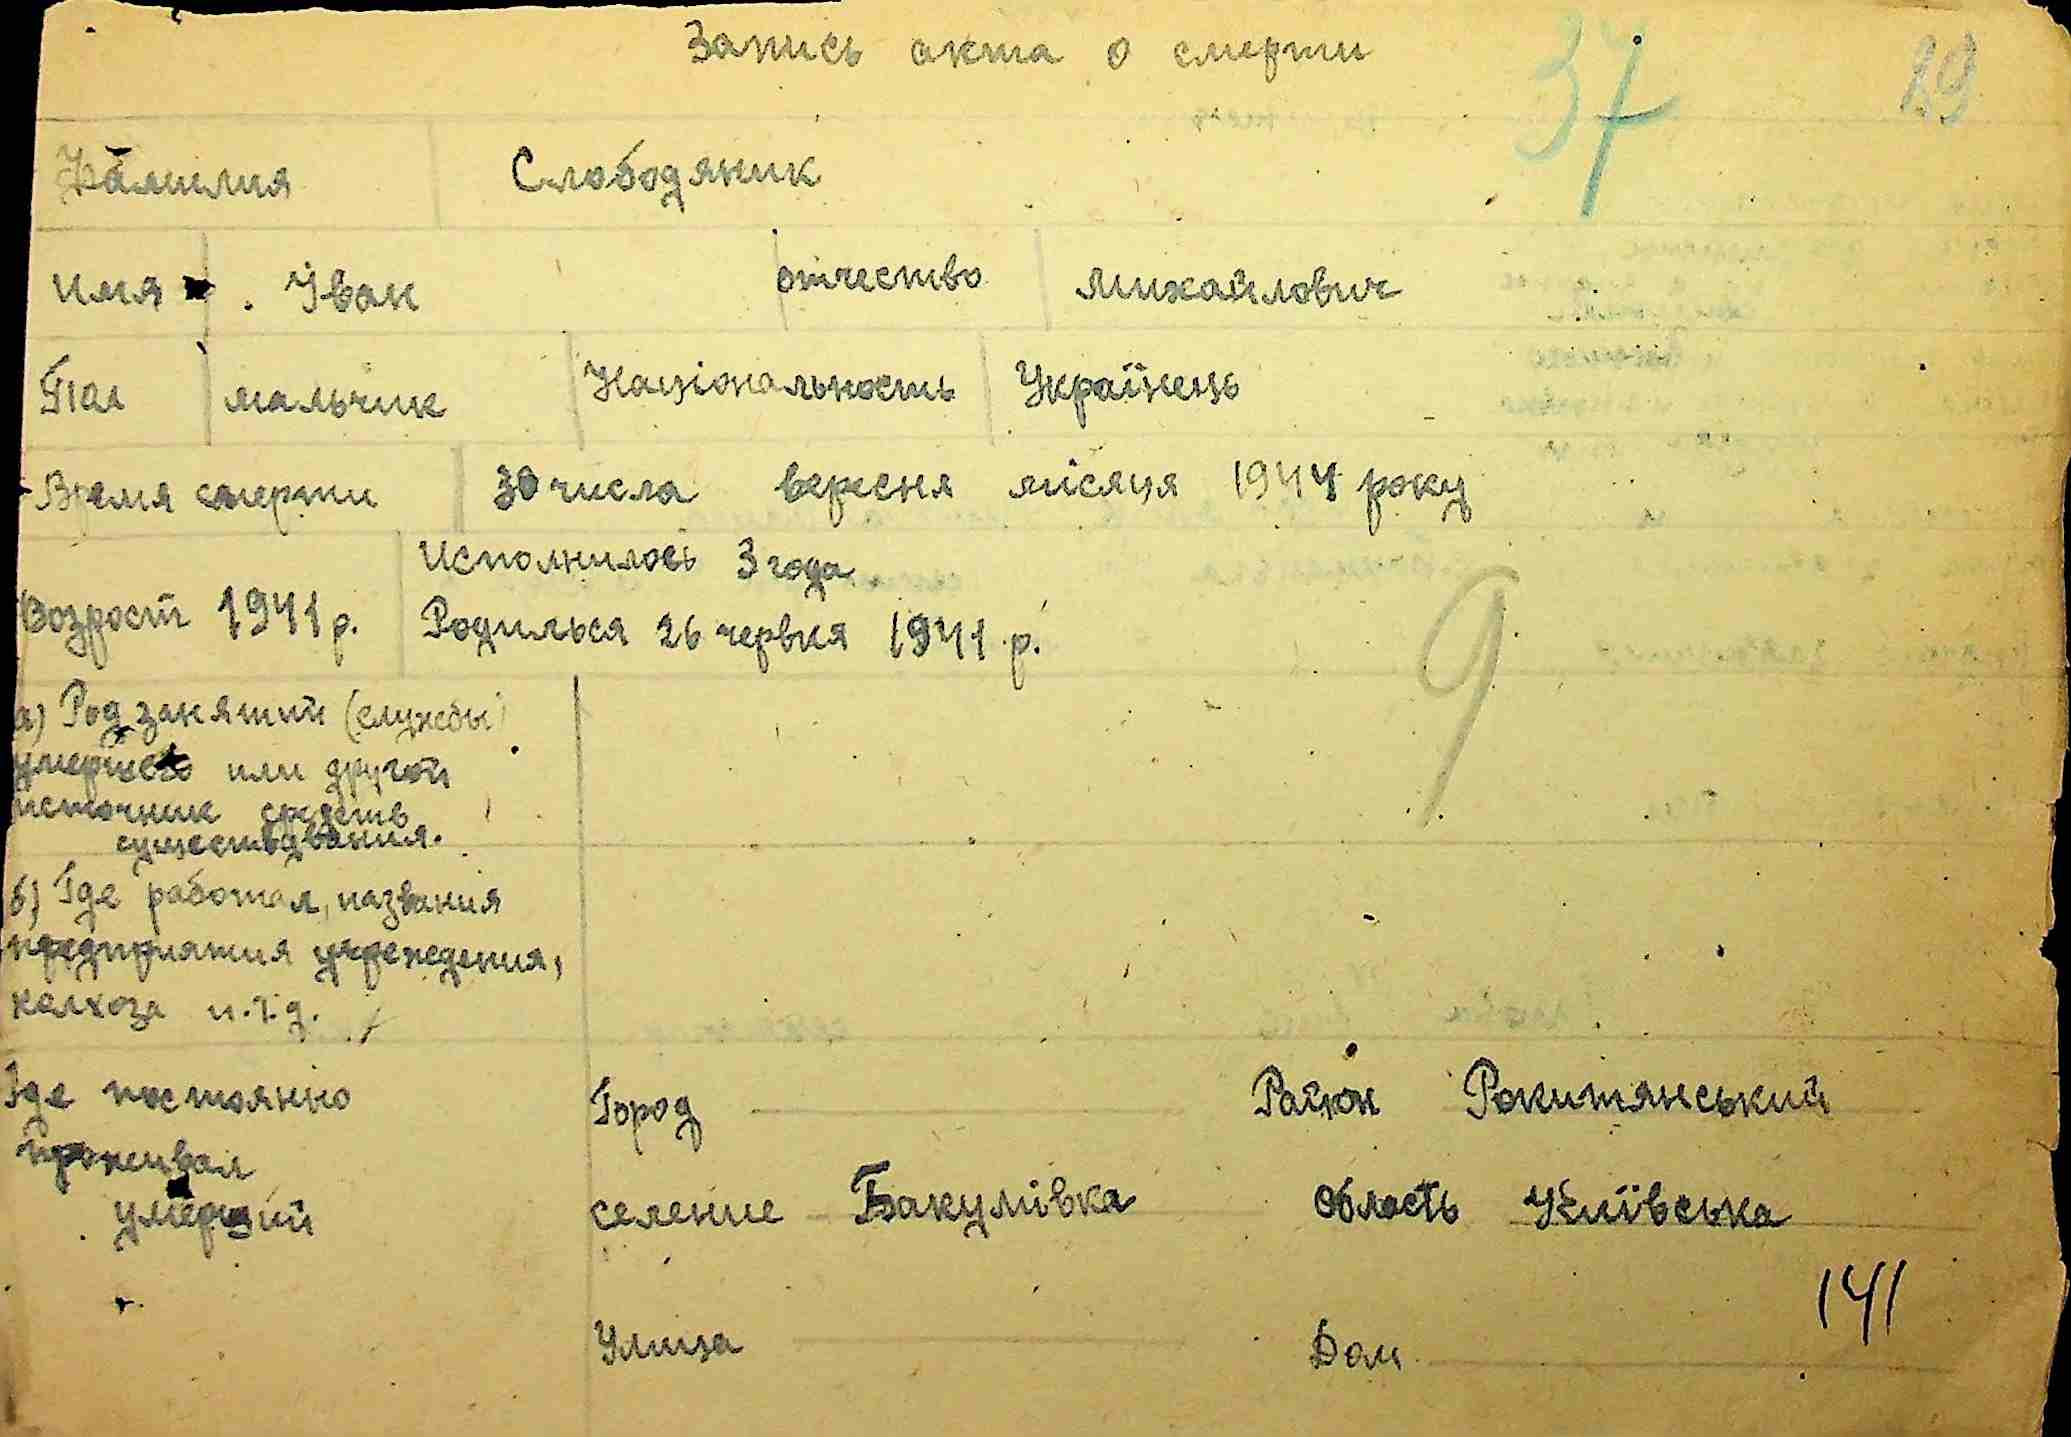 Запись акта о смерти
37
29
Фамилия Слободяник
имя Іван отчество Михайлович
Пол мальчик Національность Українець
Время смерти 30 числа вересня місяця 1944 року
Возрост 1941 р. Исполнилось 3 года
Родилься 26 червня 1941 р.
9
а) Род занятий (службы)
умершего или другой
источник средств
существования.
б) Где работал, названия
предприятия учреждения,
калхоза и.т.д.
Где постоянно
проживал
умерший
Город Район Рокитянський
селение Бакумівка область Київська
141
Улица Дом